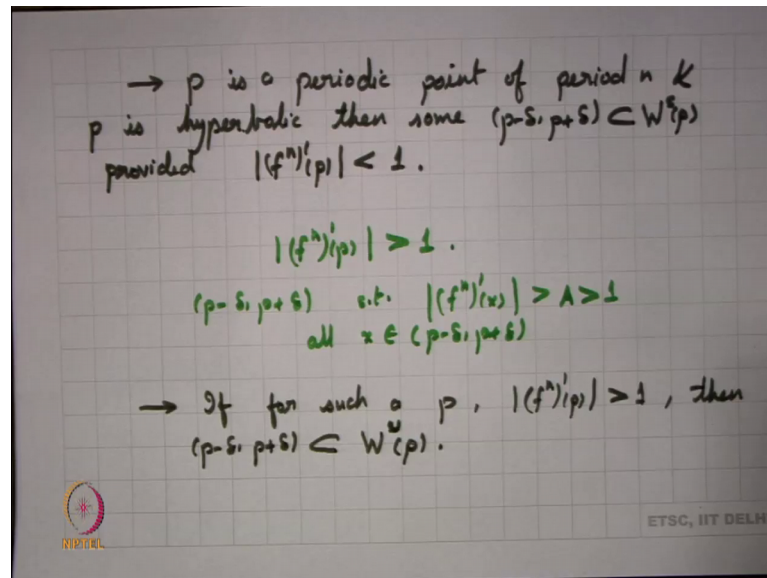 → p is a periodic point of period n &
p is hyperbolic then some (p-δ, p+δ) ⊂ Wˢ(p)
provided |(fⁿ)'(p)| < 1.
|(fⁿ)'(p)| > 1.
(p-δ, p+δ) s.t. |(fⁿ)'(x)| > A > 1
all x ∈ (p-δ, p+δ)
→ If for such a p, |(fⁿ)'(p)| > 1, then
(p-δ, p+δ) ⊂ Wᵘ(p).
NPTEL
ETSC, IIT DELH